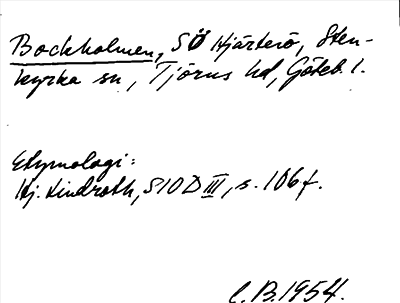 Bockholmen, SÖ Hjärterö, Sten-
kyrka sn, Tjörns hd, Göteb. l.
Etymologi:
Hj. Lindroth, SIOD III, s. 106 f.
C.B. 1954.